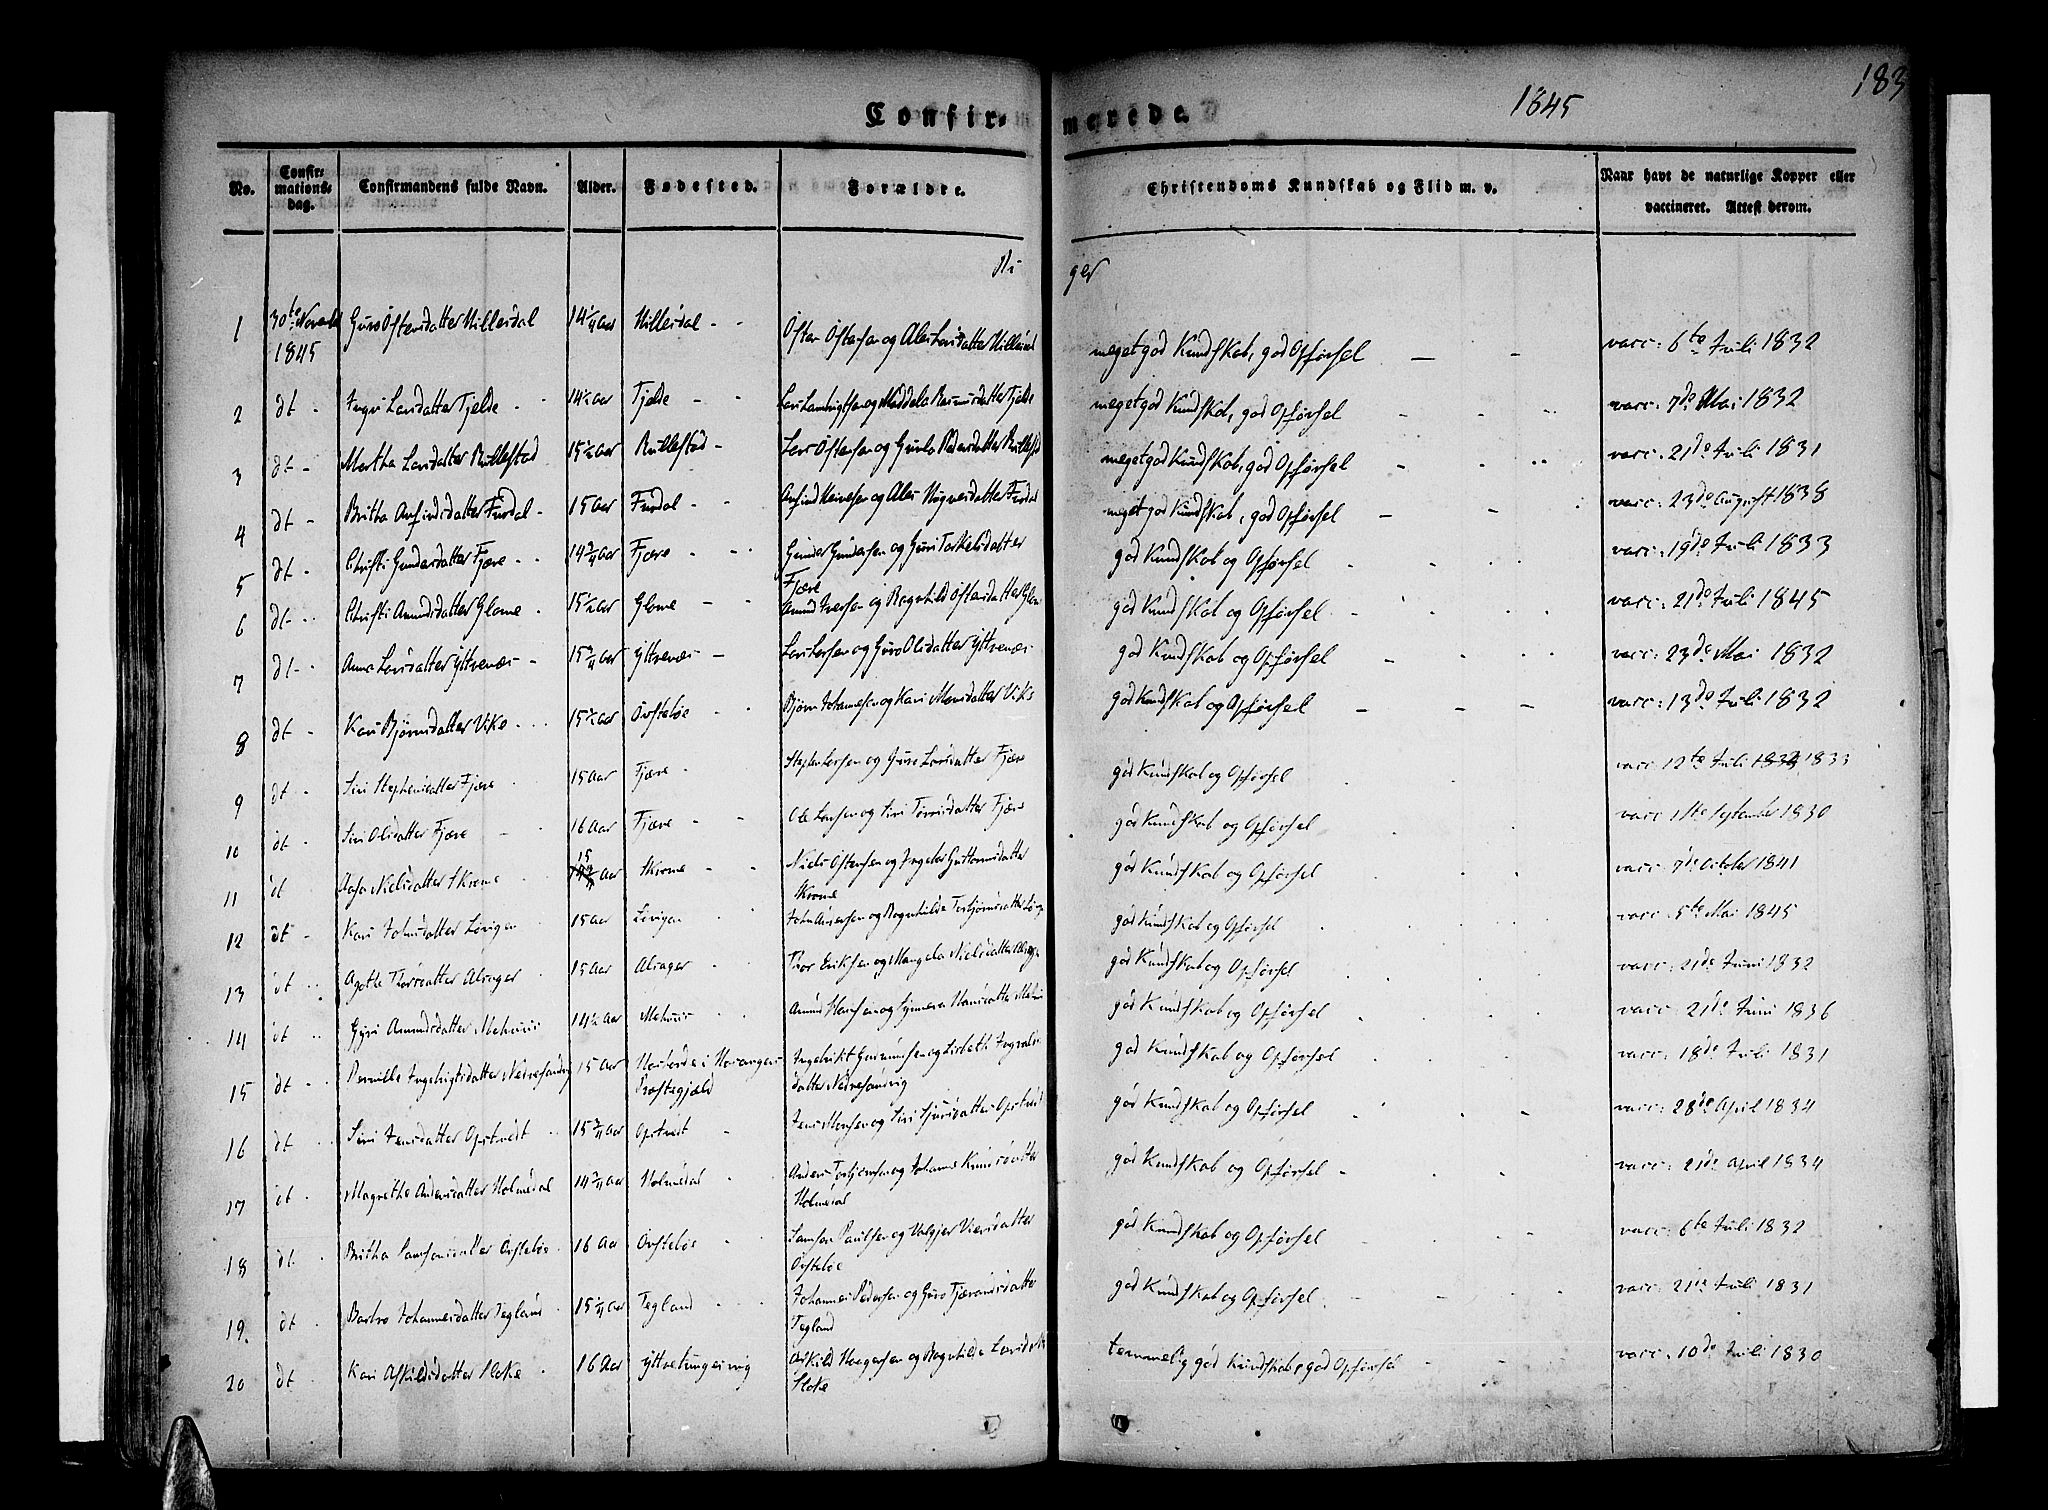 183
1845
Confirmerede.
No. Confirmationsdag. Confirmandens fulde Navn. Alder. Fødested. Forældre. Christendoms Kundskab og Flid m. v. Naar havt de naturlige Kopper eller vaccineret. Attest derom.
Piger
1 30te Novemb 1845 Guro Ostensdatter 14 Aar Osten Ostensen og meget god Kundskab, god Opførsel vacc: 6te Juli 1832
2 dt Larsdatter Tjelde 14½ Aar Tjelde Rasmusdatter Tjelde meget god Kundskab, god Opførsel vacc: 7de Mai 1832
3 dt Martha Larsdatter Rullestad 15½ Aar Rullestad Lars Ostensen og Pedersdatter meget god Kundskab, god Opførsel vacc: 21de Juli 1831
4 dt Britha Anfindsdatter Furdal 15 Aar Furdal meget god Kundskab, god Opførsel vacc: 23de August 1838
5 dt Christi Gundersdatter Fjære 14 Aar Fjære Gunder Gundersen og Guri Torkelsdatter Fjære god Kundskab og Opførsel vacc: 19de Juli 1833
6 dt Christi Amundsdatter Glame 15½ Aar Glame Amund Iversen og Ragnhild Ostensdatter god Kundskab og Opførsel vacc: 21de Juli 1845
7 dt Anna Larsdatter Yttrenæs 15 Aar Yttrenæs Lars Larsen og Guro Olsdatter Yttrenæs god Kundskab og Opførsel vacc: 23de Mai 1832
8 dt Kari Bjørnsdatter Vike 15½ Aar Bjørn Johannesen og Kari Monsdatter god Kundskab og Opførsel vacc: 13de Juli 1832
9 dt Siri Stephensdatter Fjære 15 Aar Fjære Stephen Larsen og Guro Larsdatter Fjære god Kundskab og Opførsel vacc: 12te Juli 1833
10 dt Siri Olsdatter Fjære 16 Aar Fjære Ole Larsen og Siri Fjære god Kundskab og Opførsel vacc 1ste September 1830
11 dt Aasa Nielsdatter Skrome 15 Aar Skrome Niels Ostensen og Ingebor Guttormsdatter Skrome god Kundskab og Opførsel vacc: 7de October 1841
12 dt Kari Johnsdatter Løvigen 15 Aar Løvigen John Andersen og Ragnhilde Torbjørnsdatter god Kundskab og Opførsel vacc: 5te Mai 1845
13 dt Agatha Thorsdatter Alsager 15 Aar Alsager Thor Eriksen og Mangela Nielsdatter god Kundskab og Opførsel vacc: 21de Juni 1832
14 dt Gyri Amundsdatter Mehuus 14½ Aar Mehuus Amund Hansen og Synneva Hansdatter god Kundskab og Opførsel vacc: 21de Juni 1836
15 dt Pernille Ingebrigtsdatter Nedresandvig 15 Aar i Hardanger Præstegjæld Ingebrikt Gudmundsen og Lisbeth Ingvaldsdatter Nedresandvig god Kundskab og Opførsel vacc: 18de Juli 1831
16 dt Siri Jensdatter Opstvedt 15 Aar Opstvedt Jens og Siri Sjursdatter Opstvedt god Kundskab og Opførsel vacc: 28de April 1834
17 dt Magrethe Andersdatter Holmedal 14 Aar Holmedal Anders Torbjørnsen og Johanna Knudsdatter Holmedal god Kundskab og Opførsel vacc: 21de April 1834
18 dt Britha Samsonsdatter 16 Aar Samson Paulsen og god Kundskab og Opførsel vacc: 6te Juli 1832
19. dt Barbro Johannesdatter Tegland 15 Aar Tegland Johannes Pedersen og Guro Tjærandsdatter Tegland god Kundskab og Opførsel vacc: 21de Juli 1831
20 dt Kari Askildsdatter Floke 16 Aar Yttretungesvig Askild og Ragnhilde Larsdatter Floke temmelig god Kundskab, god Opførsel vacc: 10de Juli 1830